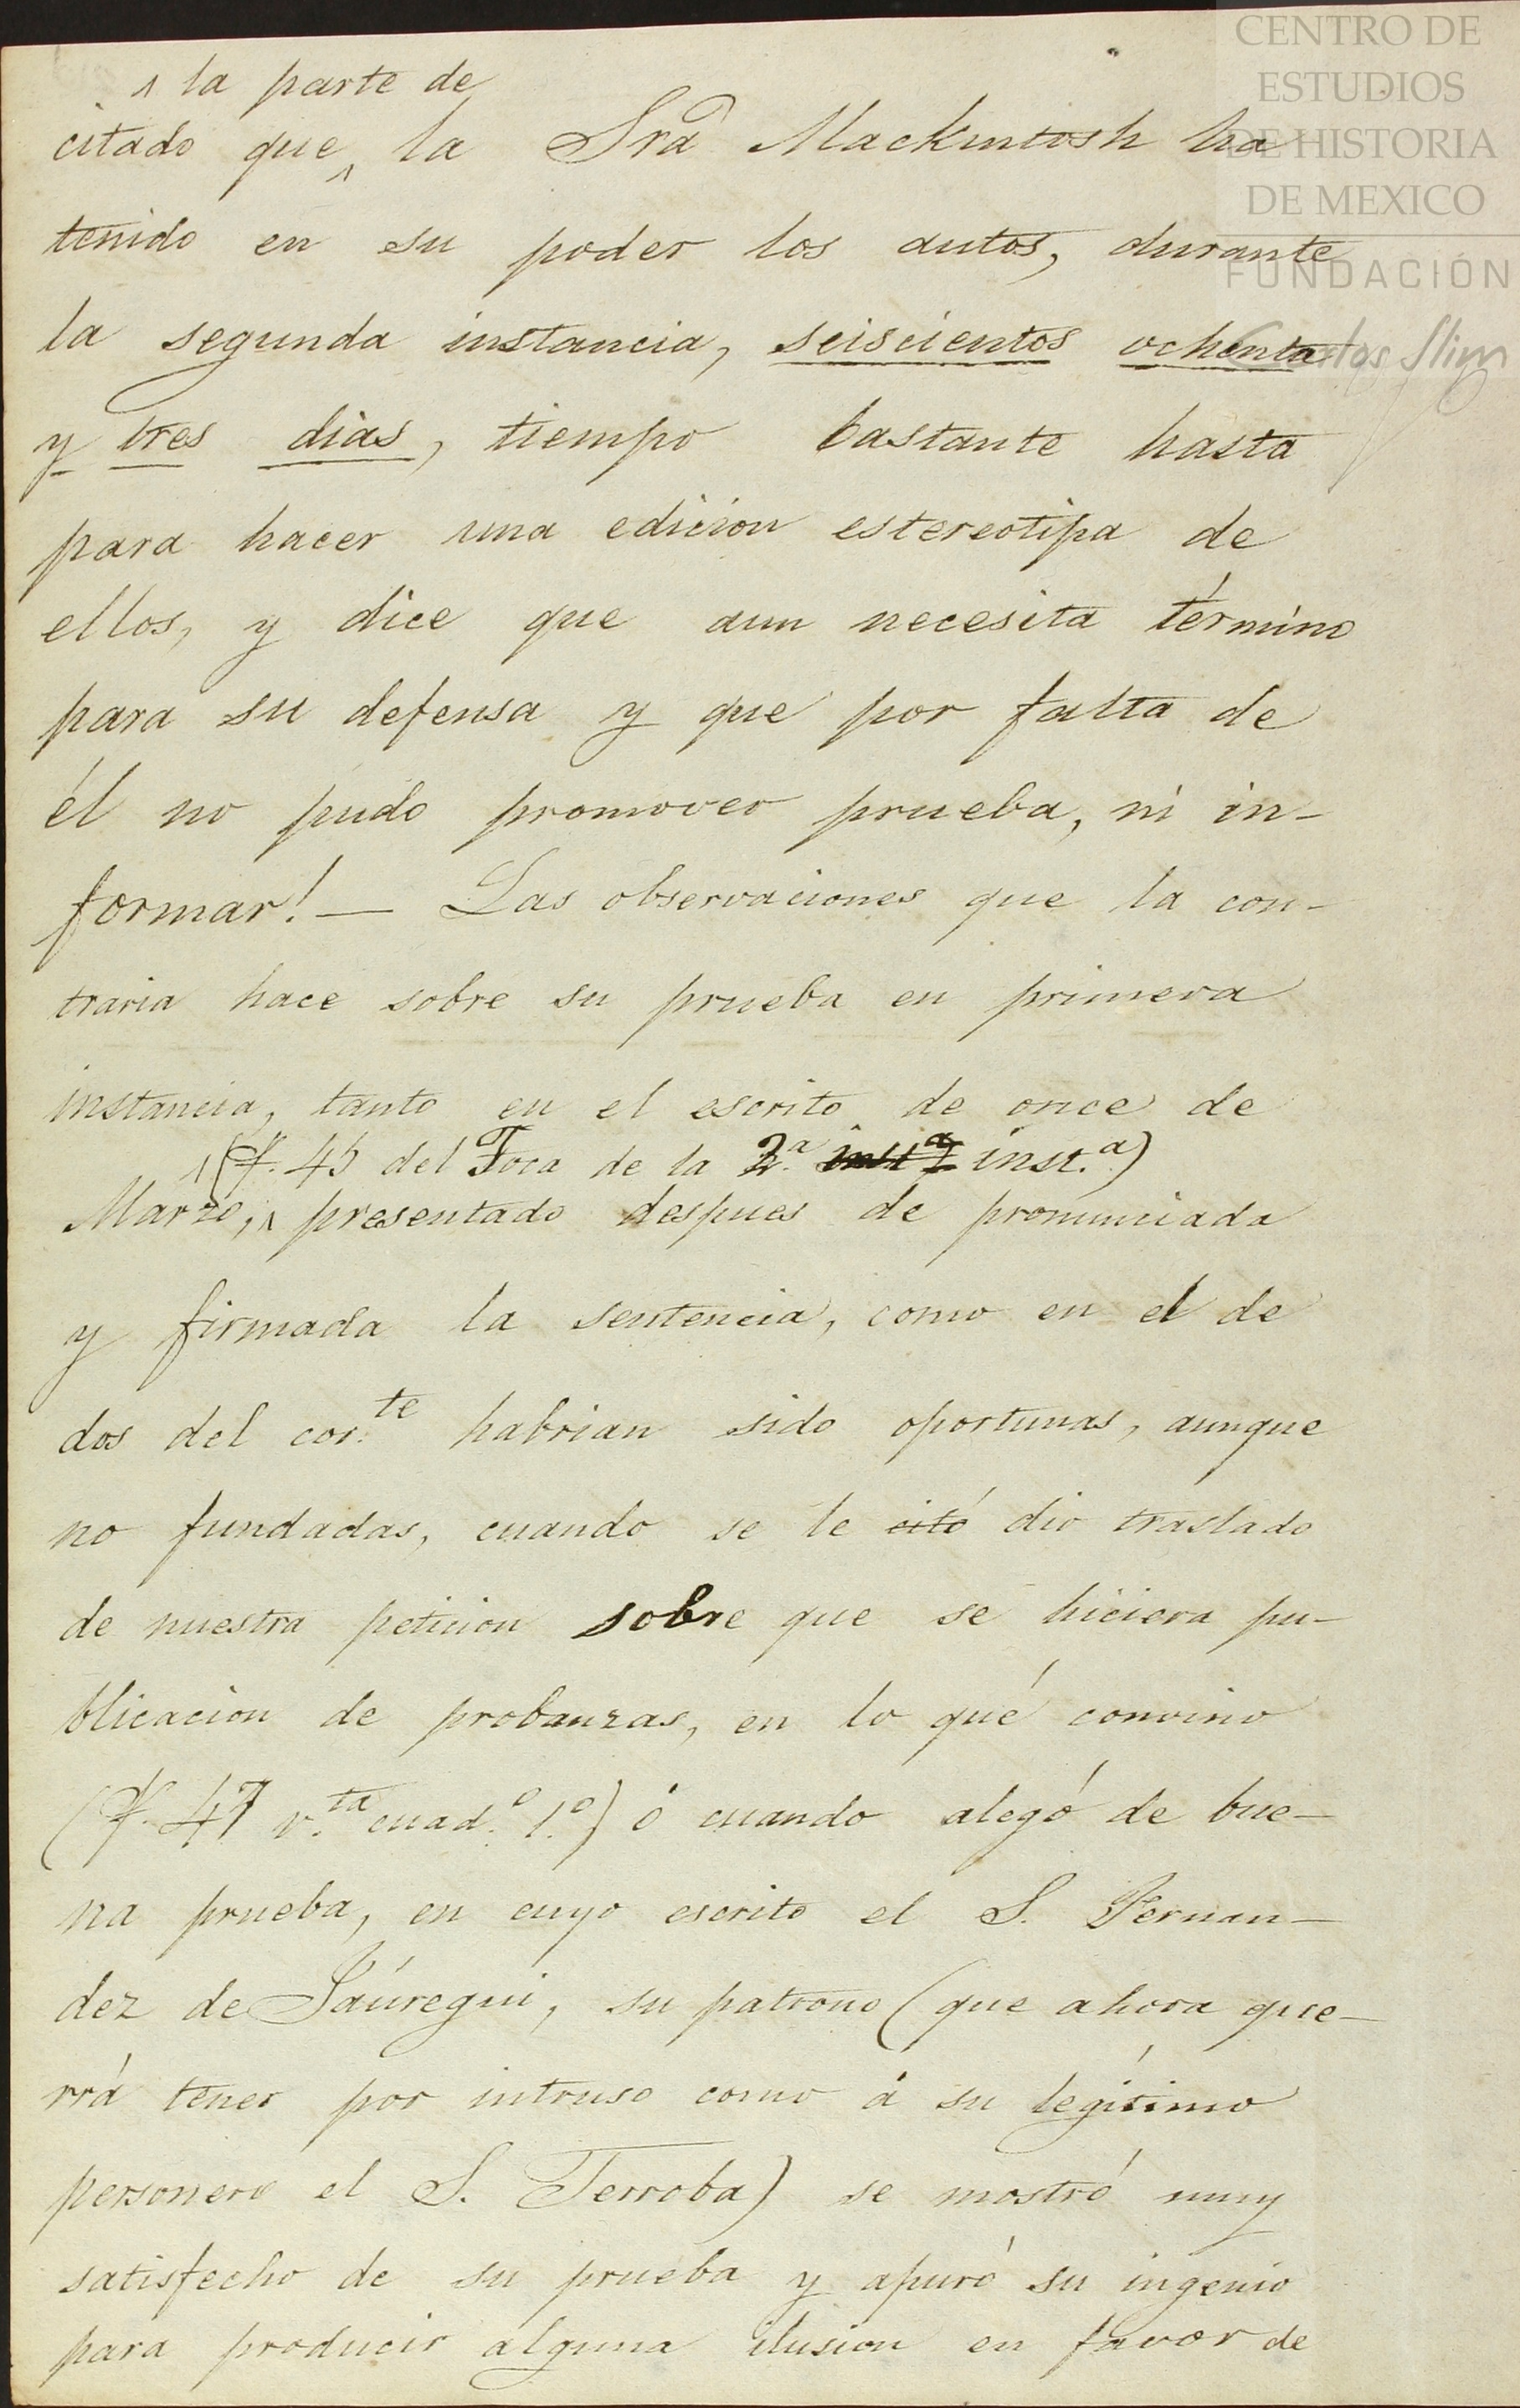 CENTRO DE
ESTUDIOS
DE HISTORIA
DE MEXICO
FUNDACIÓN
Carlos Slim
la parte de
citado que la Srâ Mackintosh ha
tenido en su poder los autos, durante
la segunda instancia, seiscientos ochenta
y tres dias, tiempo bastante hasta
para hacer una edicion estereotipa de
ellos, y dice que aun necesita término
para su defensa y que por falta de
él no pudo promover prueba, ni in-
formar! — Las observaciones que la con-
traria hace sobre su prueba en primera
instancia, tanto en el escrito de once de
(f. 45 del Toca de la 2.ª inst.ª inst.ª)
Marzo, presentado despues de pronunciada
y firmada la sentencia, como en el de
dos del cor.te habrian sido oportunas, aunque
no fundadas, cuando se le citó dio traslado
de nuestra peticion sobre que se hiciera pu-
blicacion de probanzas, en lo qué convino
(f. 47 v.ta cuad.º 1.º) ó cuando alegó de bue-
na prueba, en cuyo escrito el S. Fernan-
dez de Jáuregui, su patrono (que ahora que-
rrá tener por intruso como á su legítimo
personero el S. Terroba) se mostró muy
satisfecho de su prueba y apuró su ingenio
para producir alguna ilusion en favor de